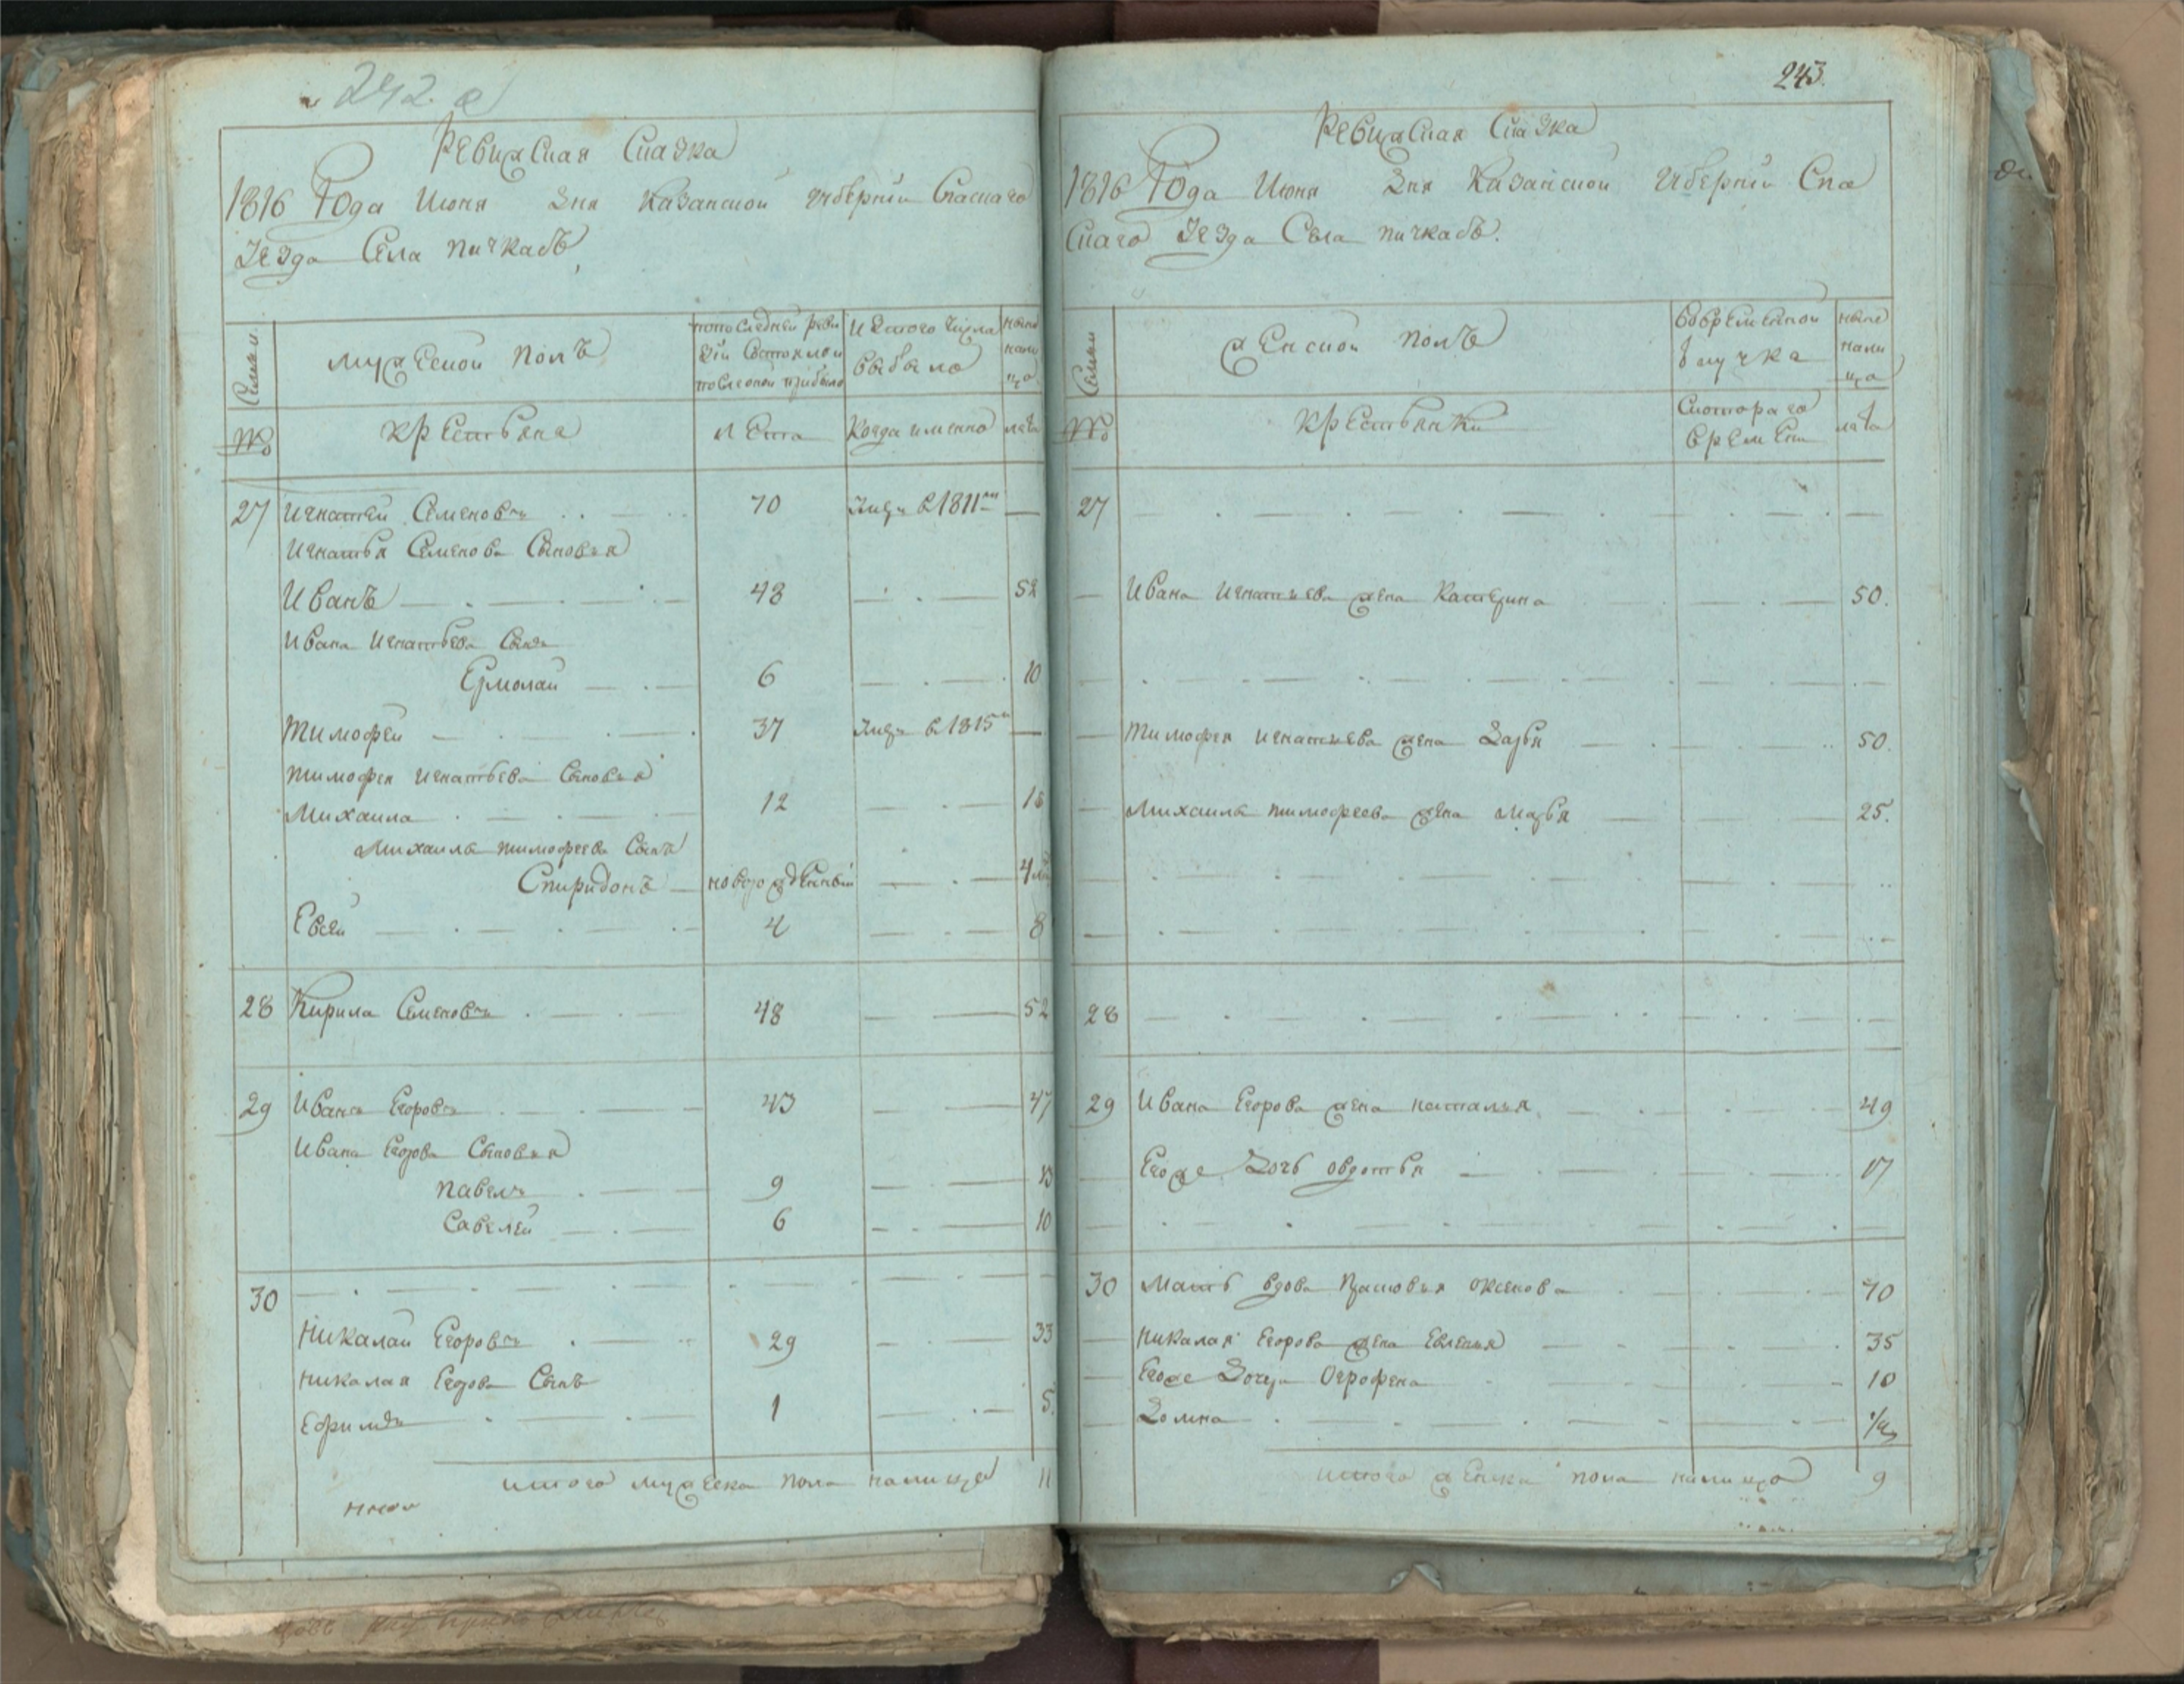 242. а
Ревижская Сказка
1816 Года Июня дня Казанской губернии Спаскаго
Уезда Села пичкасъ
Семьи
мужеской полъ
попоследней реви
зіи Состояло и
послеоной прибыло
Изтого числа
выбыло
ныне
нали
цо
№
крестьяне
Лета
Когда именно
лета
27 Игнатей Семеновъ 70 Умре в 1811м
Игнатья Семенова Сыновья
Иванъ 48 52
Ивана Игнатьева Сынъ
Ермолай 6 10
Тимофей 37 Умре в 1815м
тимофея игнатьева Сыновья
Михаила 12 16
Михаила тимофеева Сынъ
Спиридонъ новорожденный 4
Евсей 4 8
28 Кирила Семеновъ 48 52
29 Иванъ Егоровъ 43 47
Ивана Егорова Сыновья
павелъ 9 13
Савелей 6 10
30
Николай Егоровъ 29 33
николая Егорова Сынъ
Ефимъ 1 5
итого мужеска пола налицо 11
243.
Ревижская Сказка
1816 Года Июня дня Казанской губернии Спа
скаго Уезда Села пичкасъ.
Семьи
женской полъ
Вовременной
отлучке
ныне
нали
цо
№
крестьянки
Скотораго
времени
лета
27
Ивана игнатьева жена Катерина 50.
тимофея игнатьева жена Дарья 50.
Михаила тимофеева жена марья 25.
28
29 Ивана Егорова жена наталья 49
Егоже Дочь овдотья 17
30 мать вдова Прасковья оксенова 70
николая Егорова жена Евгения 35
Егоже Дочери Огрофена 10
Домна 1/2
итого женска пола налицо 9